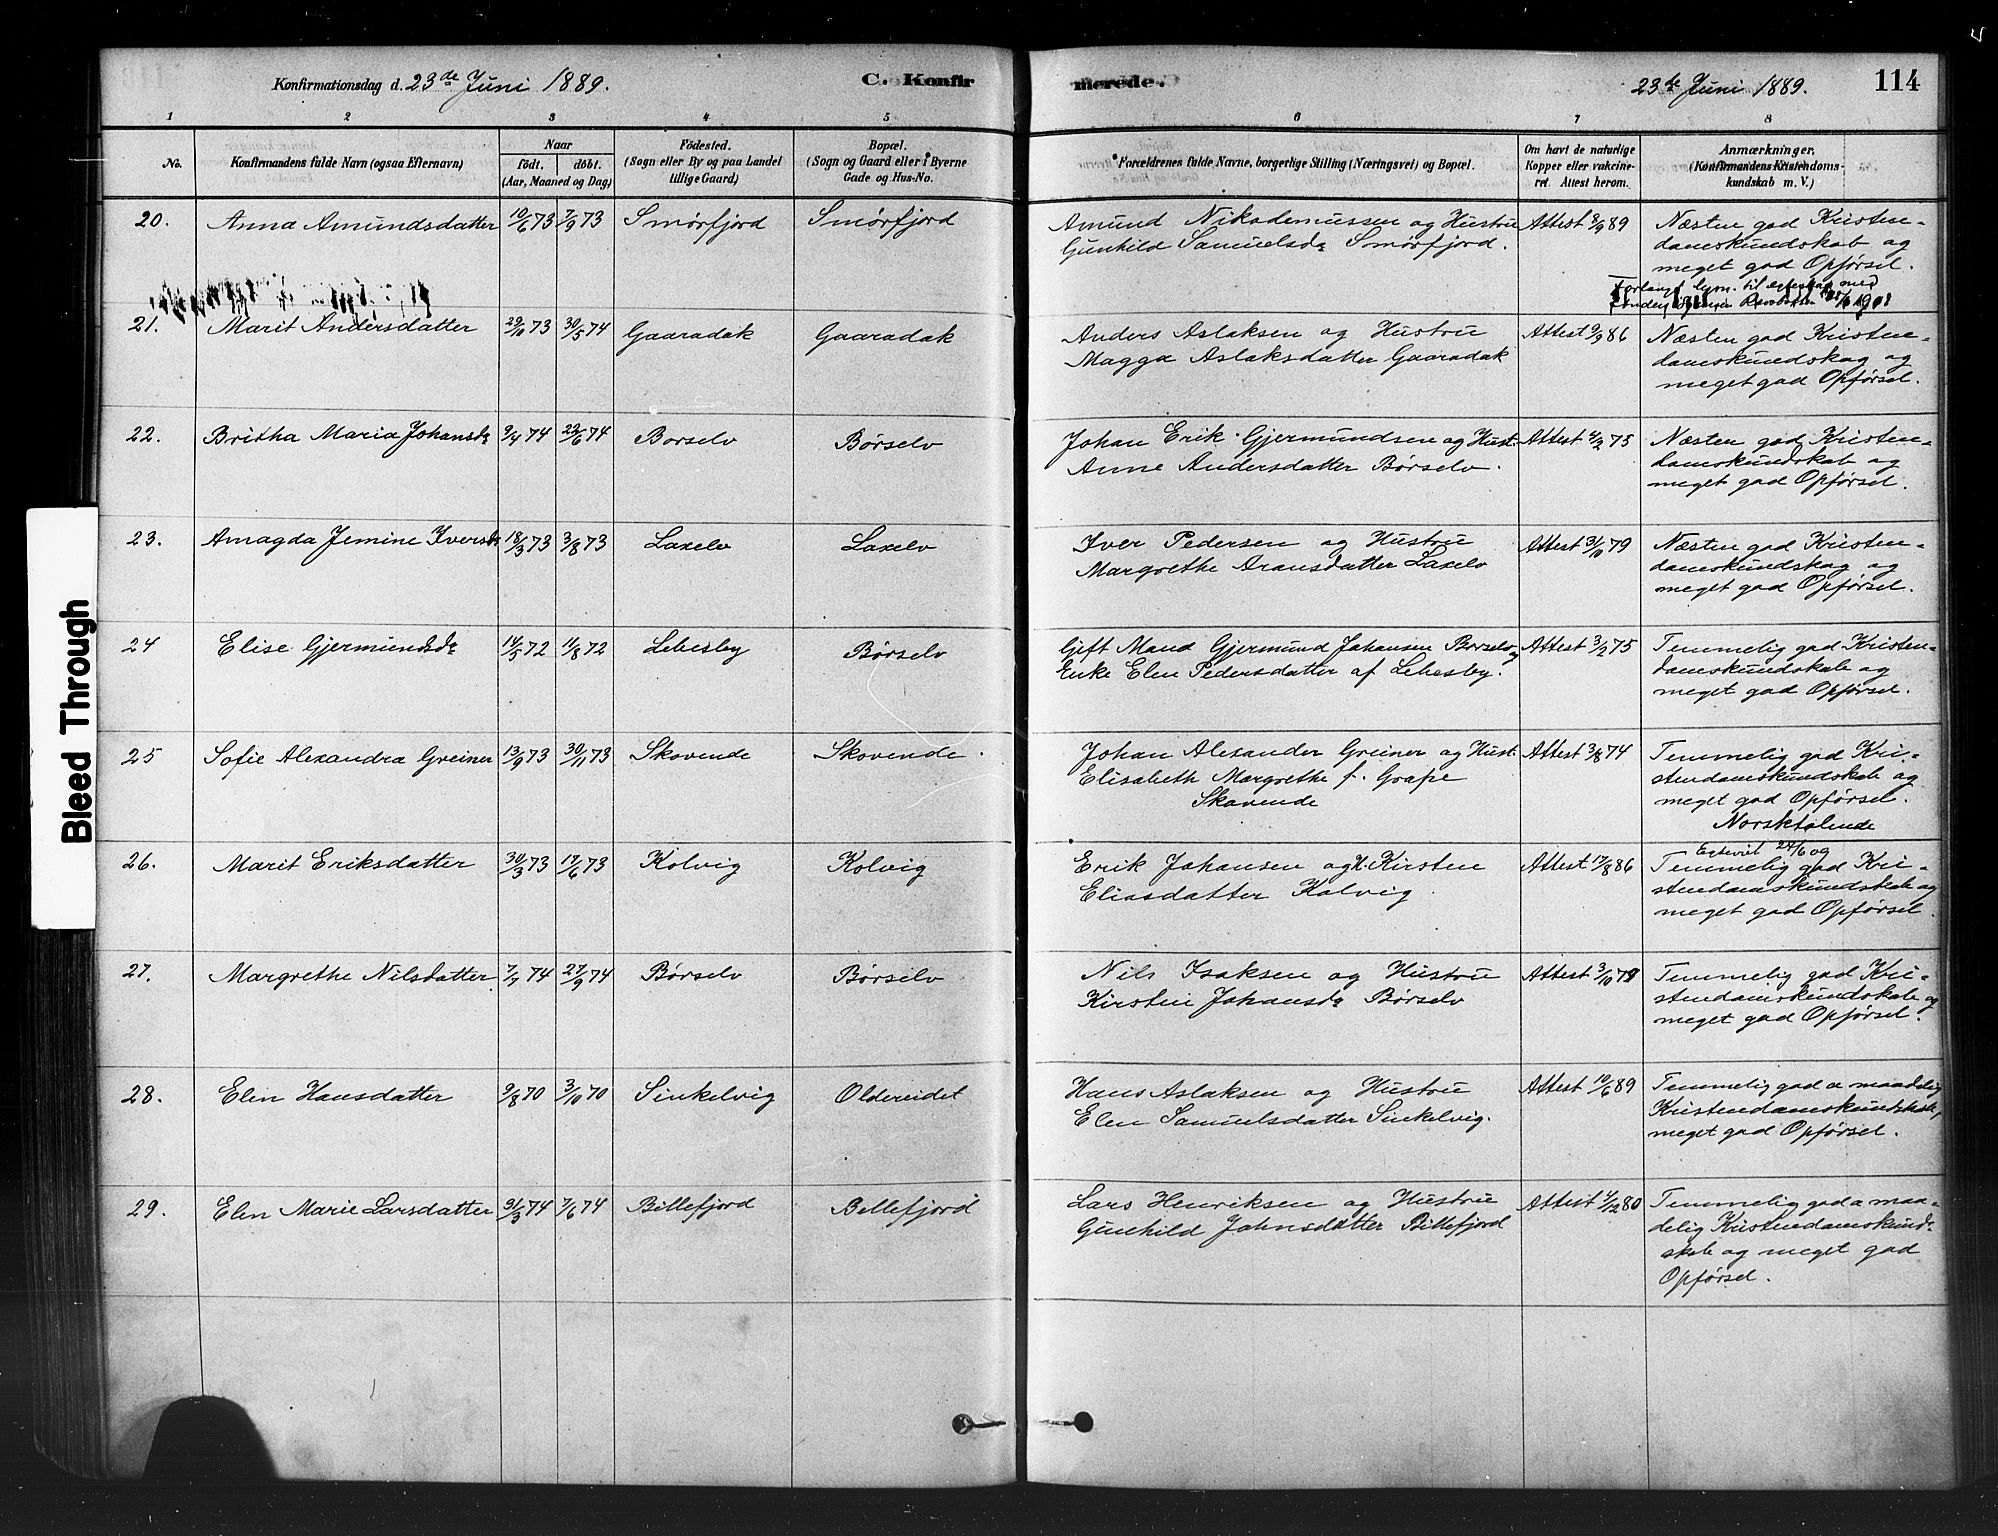 Konfirmationsdag d. 23de Juni 1889. C. Konfirmerede. 23de Juni 1889. 114
1 2 3 4 5 6 7 8
No. Konfirmandens fulde Navn (ogsaa Efternavn) Naar født. døbt. (Aar, Maaned og Dag) Fødested. (Sogn eller By og paa Landet tillige Gaard) Bopæl. (Sogn og Gaard eller i Byerne Gade og Hus-No. Forældrenes fulde Navne, borgerlige Stilling (Næringsvei) og Bopæl. Om havt de naturlige Kopper eller vakcineret. Attest herom. Anmærkninger. (Konfirmandens Kristendomskundskab m. V.)
20. Anna Amundsdatter 10/6 73 7/9 73 Smørfjord Smørfjord Amund Nikodemussen og Hustru Attest 8/9 89 Næsten god Kristen-
Gunhild Samuelsdr Smørfjord. domskundskab og
meget god Opførsel.
21. Marit Andersdatter 29/10 73 30/5 74 Gaaradak Gaaradak Anders Aslaksen og Hustru Attest 9/9 86 Næsten god Kristen-
Magga Aslaksdatter Gaaradak domskundskag og
meget god Opførsel.
22. Britha Maria Johansdr 9/4 74 22/6 74 Børselv Børselv Johan Erik Gjermundsen og Hust. Attest 4/2 75 Næsten god Kristen-
Anne Andersdatter Børselv. domskundskab og
meget god Opførsel.
23. Amagda Jemine Iversdr 18/3 73 3/8 73 Laxelv Laxelv Iver Pedersen og Hustru Attest 31/10 79 Næsten god Kristen-
Margrethe Aronsdatter Laxelv domskundskag og
meget god Opførsel.
24 Elise Gjermundsdr 14/5 72 11/8 72 Lebesby Børselv Gift Mand Gjermund Johansen Børselv og Attest 3/2 75 Temmelig god Kristen-
Enke Elen Pedersdatter af Lebesby. domskundskab og
meget god Opførsel.
25 Sofie Alexandra Greiner 13/9 73 30/11 73 Skovende Skovende. Johan Alexander Greiner og Hust. Attest 3/8 74 Temmelig god Kri-
Elisabeth Margrethe f. Grape stendomskundskab og
Skovende meget god Opførsel.
Norsktalende
26. Marit Eriksdatter 30/3 73 17/6 73 Kolvig Kolvig Erik Johansen og H. Kirsten Attest 17/8 86 Temmelig god Kri-
Eliasdatter Kolvig. stendomskundskab og
meget god Opførsel.
27. Margrethe Nilsdatter. 7/7 74 27/9 74 Børselv Børselv Nils Isaksen og Hustru Attest 3/10 79 Temmelig god Kri-
Kirsten Johansdr Børselv stendomskundskab og
meget god Opførsel.
28. Elen Hansdatter 9/8 70 3/10 70 Sinkelvig Oldereidet Hans Aslaksen og Hustru Attest 10/6 89 Temmelig god a maadelig
Elen Samuelsdatter Sinkelvig. Kristendomskundskab,
meget god Opførsel.
29. Elen Marie Larsdatter 31/3 74 7/6 74 Billefjord Billefjord Lars Henriksen og Hustru Attest 4/12 80 Temmelig god a maa-
Gunhild Johnsdatter Billefjord delig Kristendomskund-
skab og meget god
Opførsel.
Bleed Through